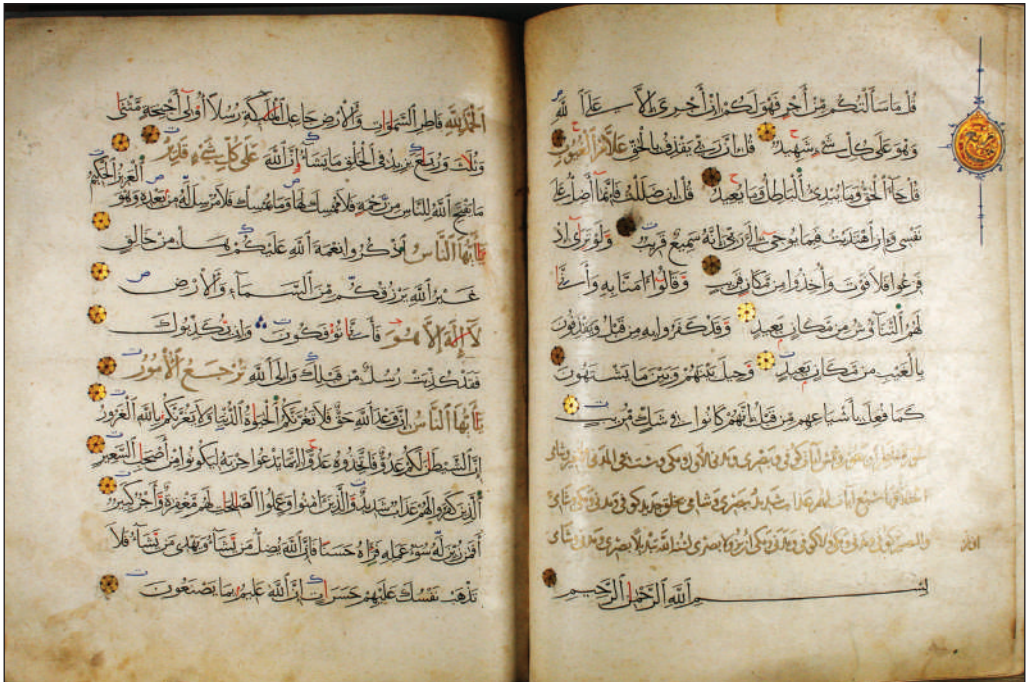 قُلْ مَا سَأَلْتُكُم مِّنْ أَجْرٍ فَهُوَ لَكُمْ إِنْ أَجْرِيَ إِلَّا عَلَى اللَّهِ
وَهُوَ عَلَى كُلِّ شَيْءٍ شَهِيدٌ قُلْ إِنَّ رَبِّي يَقْذِفُ بِالْحَقِّ عَلَّامُ الْغُيُوبِ
قُلْ جَاءَ الْحَقُّ وَمَا يُبْدِئُ الْبَاطِلُ وَمَا يُعِيدُ قُلْ إِن ضَلَلْتُ فَإِنَّمَا أَضِلُّ عَلَى
نَفْسِي وَإِنِ اهْتَدَيْتُ فَبِمَا يُوحِي إِلَيَّ رَبِّي إِنَّهُ سَمِيعٌ قَرِيبٌ وَلَوْ تَرَى إِذْ
فَزِعُوا فَلَا فَوْتَ وَأُخِذُوا مِن مَّكَانٍ قَرِيبٍ وَقَالُوا آمَنَّا بِهِ وَأَنَّى
لَهُمُ التَّنَاوُشُ مِن مَّكَانٍ بَعِيدٍ وَقَدْ كَفَرُوا بِهِ مِن قَبْلُ وَيَقْذِفُونَ
بِالْغَيْبِ مِن مَّكَانٍ بَعِيدٍ وَحِيلَ بَيْنَهُمْ وَبَيْنَ مَا يَشْتَهُونَ
كَمَا فُعِلَ بِأَشْيَاعِهِم مِّن قَبْلُ إِنَّهُمْ كَانُوا فِي شَكٍّ مُّرِيبٍ
بِسْمِ اللَّهِ الرَّحْمَنِ الرَّحِيمِ
الْحَمْدُ لِلَّهِ فَاطِرِ السَّمَوَاتِ وَالْأَرْضِ جَاعِلِ الْمَلَائِكَةِ رُسُلًا أُولِي أَجْنِحَةٍ مَّثْنَى
وَثُلَاثَ وَرُبَاعَ يَزِيدُ فِي الْخَلْقِ مَا يَشَاءُ إِنَّ اللَّهَ عَلَى كُلِّ شَيْءٍ قَدِيرٌ
مَا يَفْتَحِ اللَّهُ لِلنَّاسِ مِن رَّحْمَةٍ فَلَا مُمْسِكَ لَهَا وَمَا يُمْسِكْ فَلَا مُرْسِلَ لَهُ مِن بَعْدِهِ وَهُوَ الْعَزِيزُ الْحَكِيمُ
يَا أَيُّهَا النَّاسُ اذْكُرُوا نِعْمَةَ اللَّهِ عَلَيْكُمْ هَلْ مِنْ خَالِقٍ
غَيْرُ اللَّهِ يَرْزُقُكُم مِّنَ السَّمَاءِ وَالْأَرْضِ
لَا إِلَهَ إِلَّا هُوَ فَأَنَّى تُؤْفَكُونَ وَإِن يُكَذِّبُوكَ
فَقَدْ كُذِّبَتْ رُسُلٌ مِّن قَبْلِكَ وَإِلَى اللَّهِ تُرْجَعُ الْأُمُورُ
يَا أَيُّهَا النَّاسُ إِنَّ وَعْدَ اللَّهِ حَقٌّ فَلَا تَغُرَّنَّكُمُ الْحَيَاةُ الدُّنْيَا وَلَا يَغُرَّنَّكُم بِاللَّهِ الْغَرُورُ
إِنَّ الشَّيْطَانَ لَكُمْ عَدُوٌّ فَاتَّخِذُوهُ عَدُوًّا إِنَّمَا يَدْعُوا حِزْبَهُ لِيَكُونُوا مِنْ أَصْحَابِ السَّعِيرِ
الَّذِينَ كَفَرُوا لَهُمْ عَذَابٌ شَدِيدٌ وَالَّذِينَ آمَنُوا وَعَمِلُوا الصَّالِحَاتِ لَهُم مَّغْفِرَةٌ وَأَجْرٌ كَبِيرٌ
أَفَمَن زُيِّنَ لَهُ سُوءُ عَمَلِهِ فَرَآهُ حَسَنًا فَإِنَّ اللَّهَ يُضِلُّ مَن يَشَاءُ وَيَهْدِي مَن يَشَاءُ فَلَا
تَذْهَبْ نَفْسُكَ عَلَيْهِمْ حَسَرَاتٍ إِنَّ اللَّهَ عَلِيمٌ بِمَا يَصْنَعُونَ